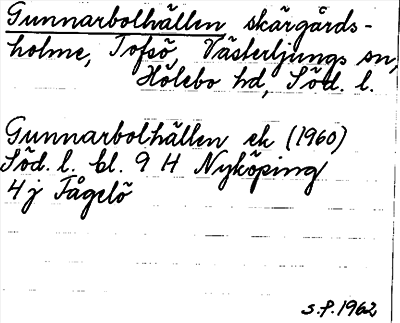 Gunnarbolhällen skärgårds-
holme, Tofsö Västerljungs sn,
Hölebo hd, Söd. l.
Gunnarbolhällen ek (1960)
Söd. l. bl. 9 H Nyköping
4 j Fågelö
S.P. 1962